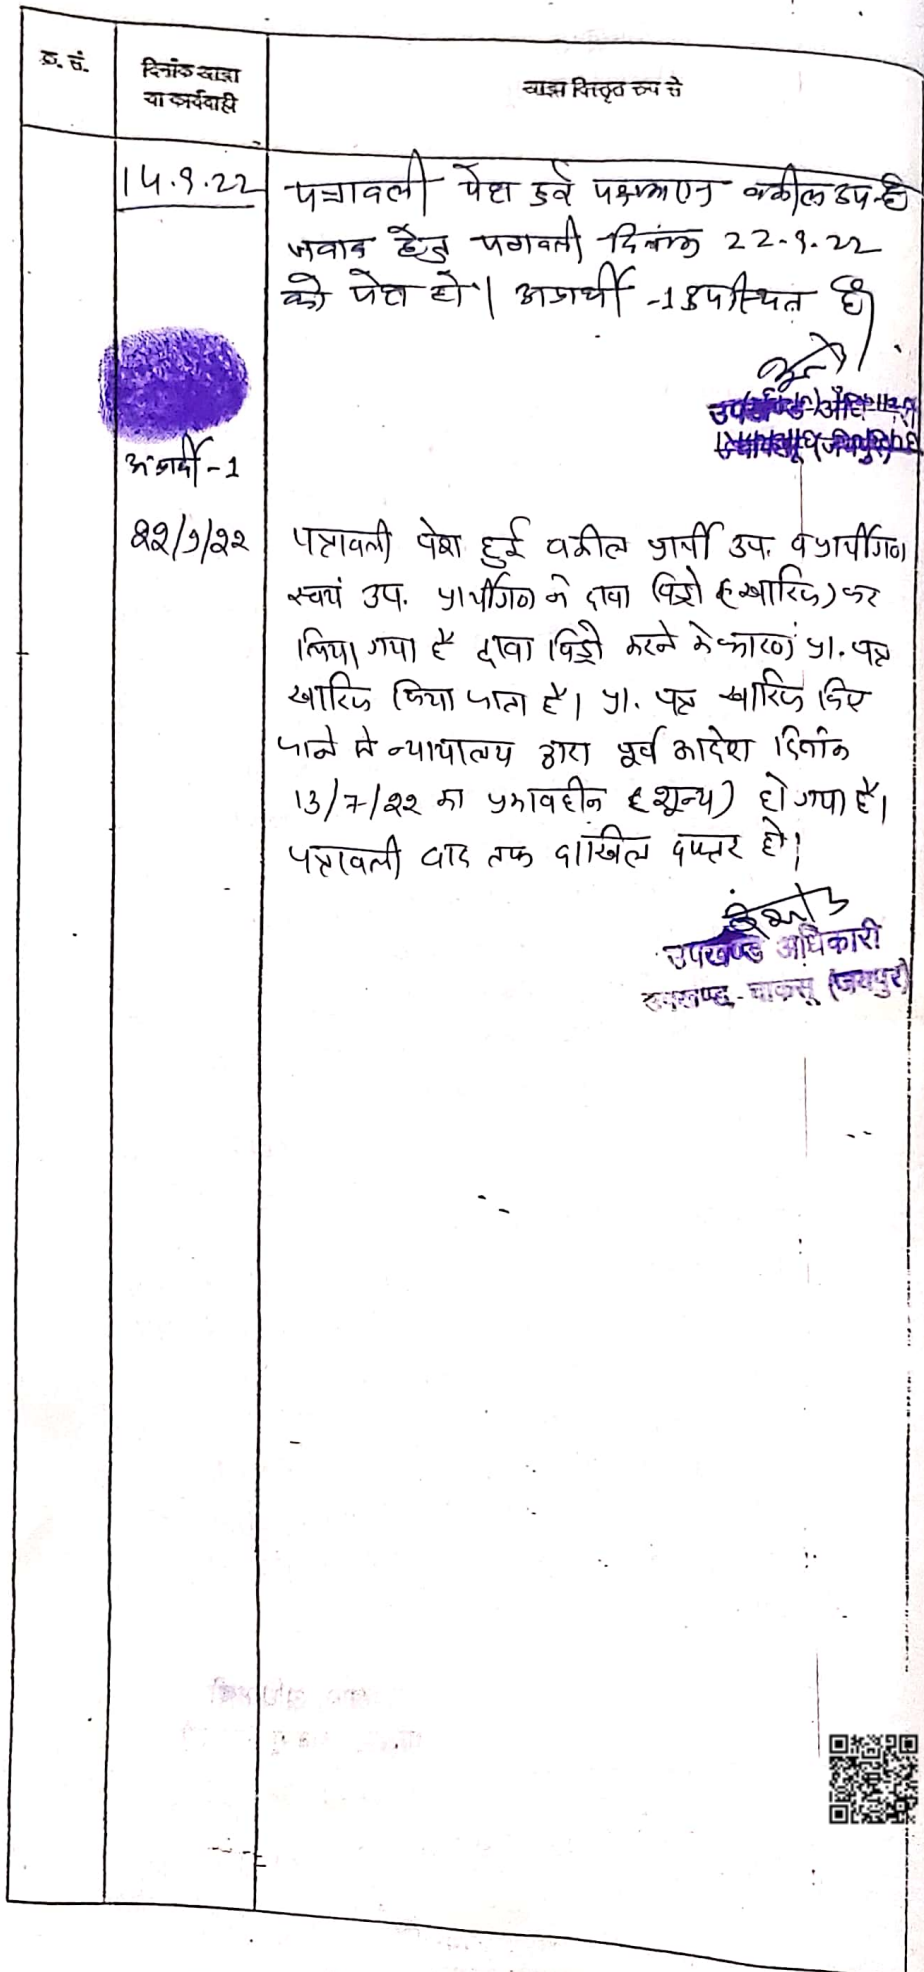 क्र. सं.
दिनांक आज्ञा
या कार्यवाही
आज्ञा विस्तृत रूप से
14.9.22
पत्रावली पेश हुई वकील उप. है
जवाब हेतु पत्रावली दिनांक 22.9.22
को पेश हो। अप्रार्थी -1 उपस्थित है।
उपखण्ड अधिकारी
अप्रार्थी -1
22/9/22
पत्रावली पेश हुई वकील प्रार्थी उप. व प्रार्थीगण
स्वयं उप. प्रार्थीगण ने दावा विड्रो (खारिज) कर
लिया गया है दावा विड्रो करने के कारण प्रा. पत्र
खारिज किया जाता है। प्रा. पत्र खारिज किए
जाने से न्यायालय द्वारा पूर्व आदेश दिनांक
13/7/22 का प्रभावहीन (शून्य) हो गया है।
पत्रावली बाद तक दाखिल दफ्तर हो।
उपखण्ड अधिकारी
उपखण्ड - चाकसू (जयपुर)